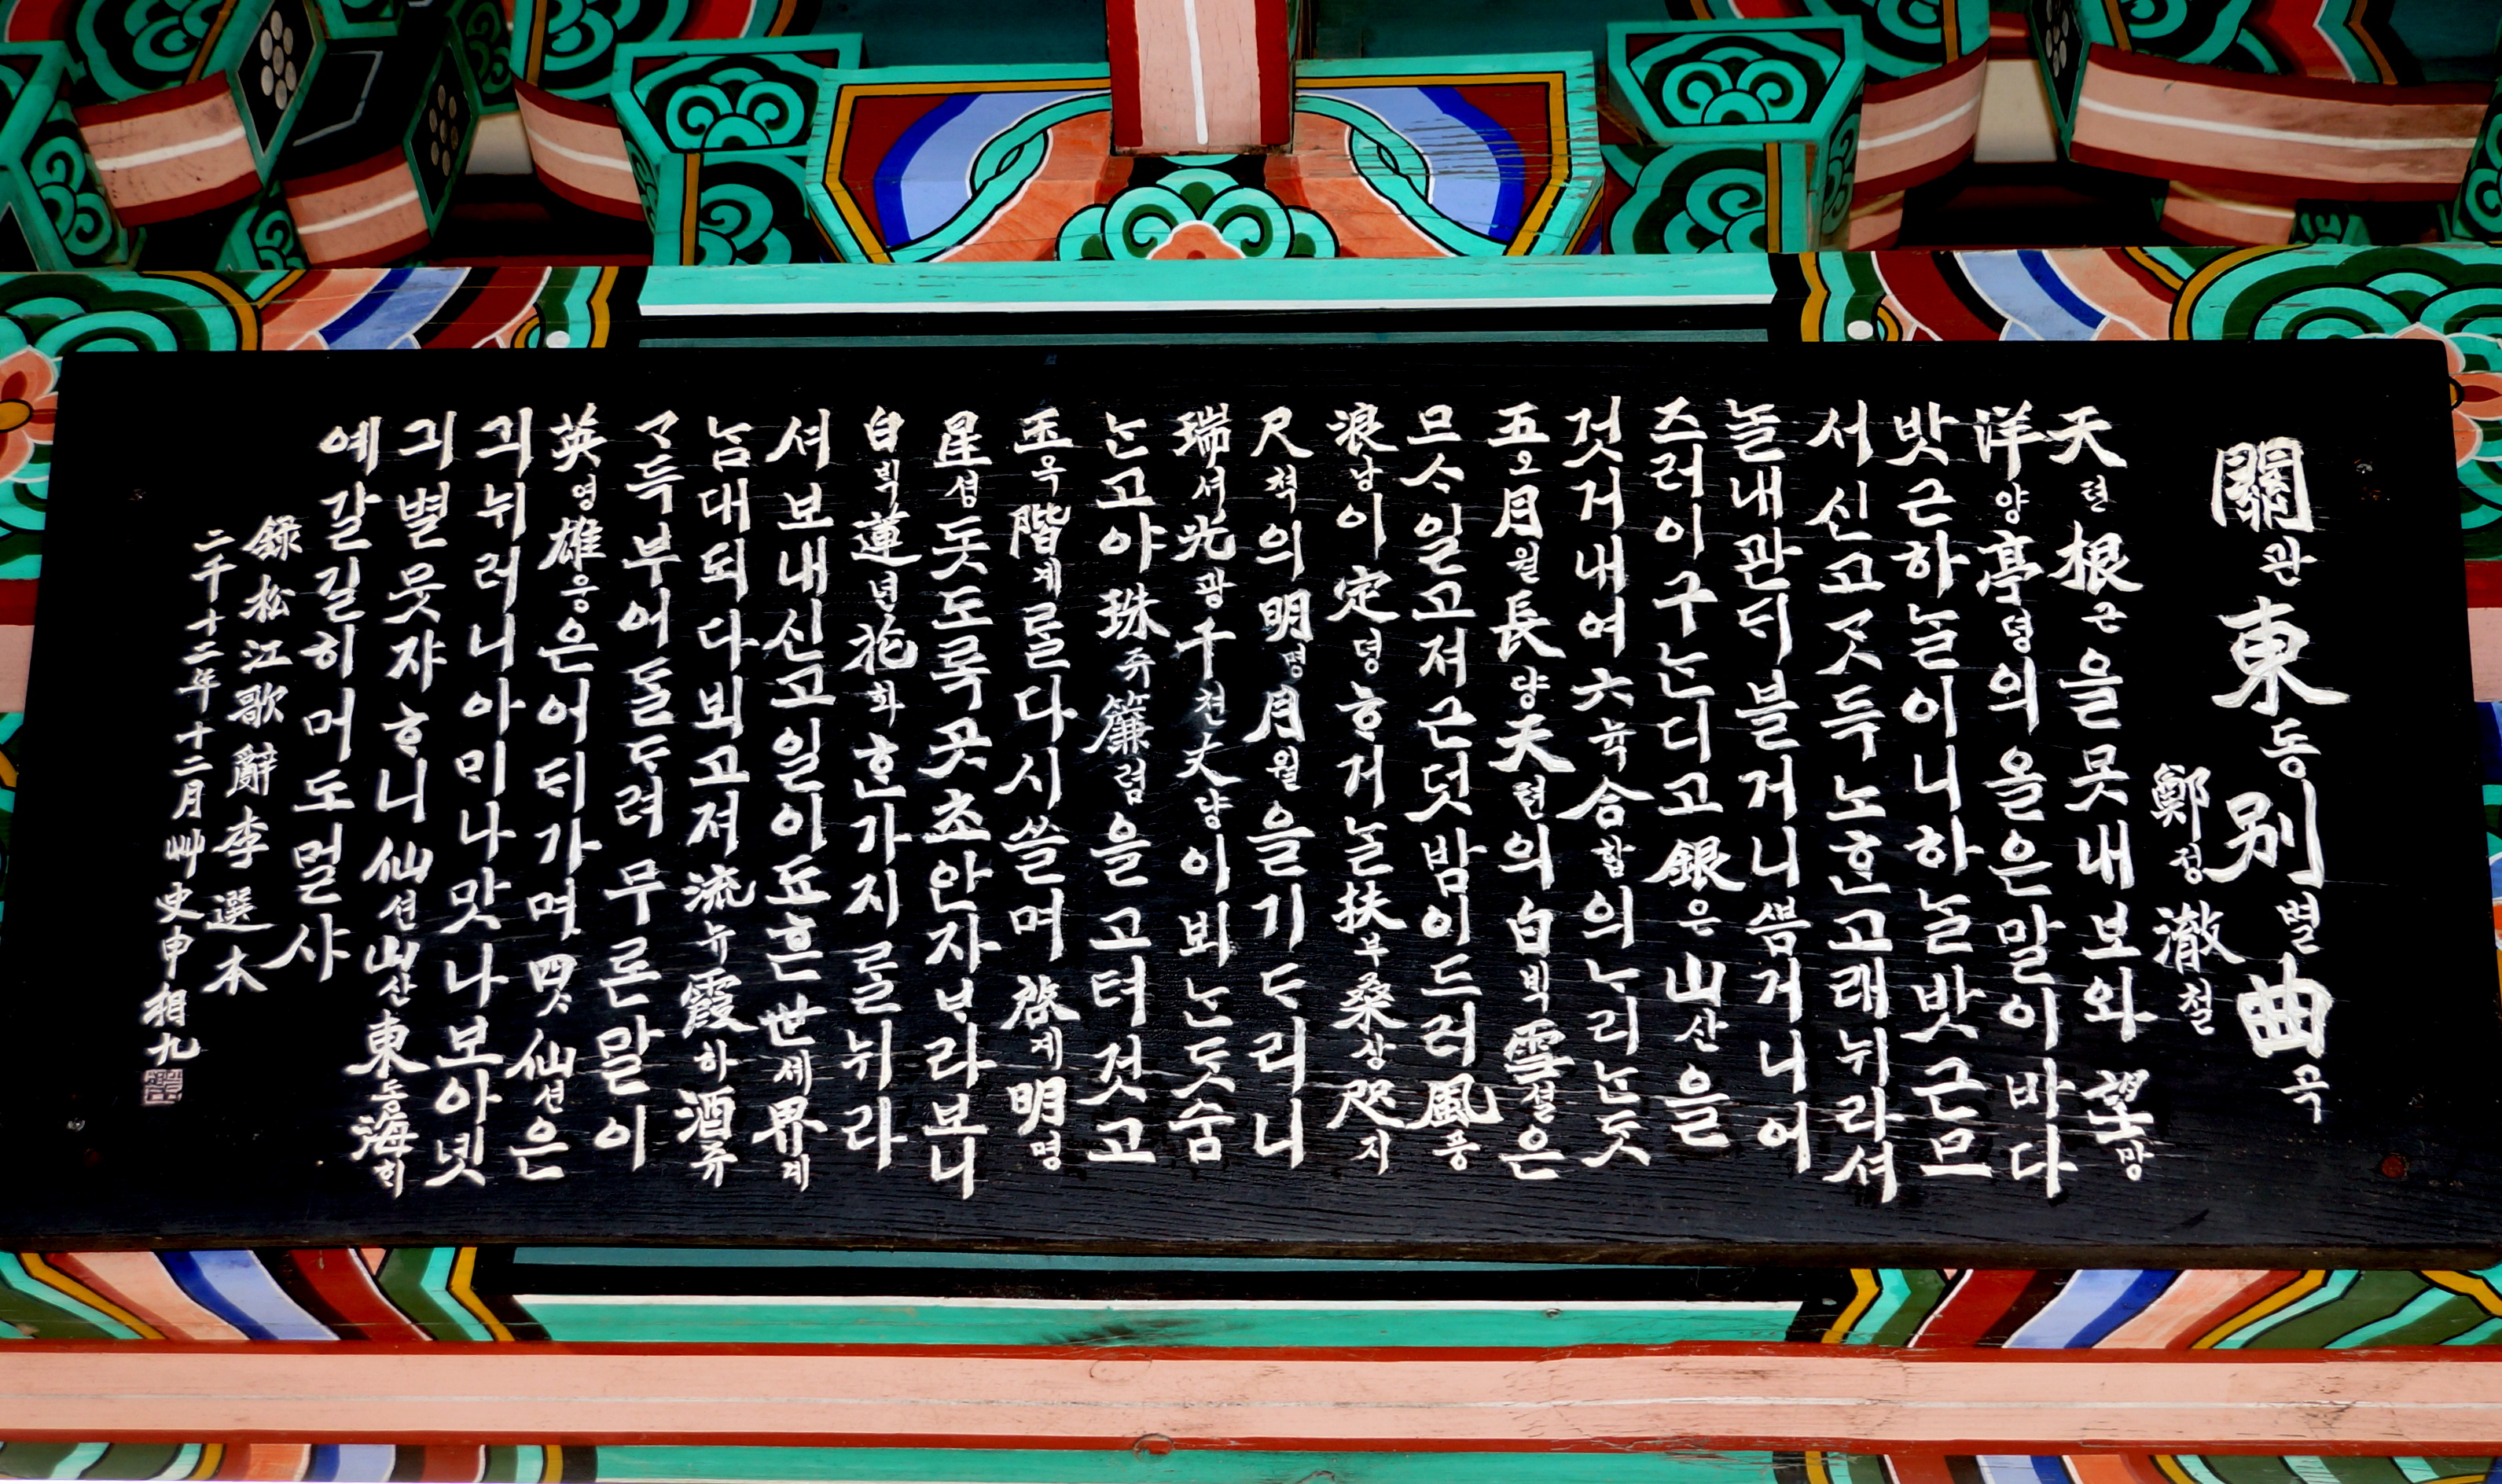 關관東동別별曲곡
鄭정澈철
天텬根근을못내보와望망
洋양亭뎡의올은말이바다
밧근하ᄂᆞᆯ이니하ᄂᆞᆯ밧근므
서신고ᄀᆞᆺ득노ᄒᆞᆫ고래뉘라셔
놀내관ᄃᆡ블거니ᄲᅳᆷ거니어
즈러이구ᄂᆞᆫ디고銀은山산을
것거내여六뉵合합의ᄂᆞ리ᄂᆞᆫᄃᆞᆺ
五오月월長댱天텬의白ᄇᆡᆨ雪셜은
므ᄉᆞ일고져근덧밤이드러風풍
浪낭이定뎡ᄒᆞ거ᄂᆞᆯ扶부桑상咫지
尺쳑의明명月월을기ᄃᆞ리니
瑞셔光광千쳔丈댱이뵈ᄂᆞᆫᄃᆞᆺ숨
ᄂᆞᆫ고야珠쥬簾렴을고텨것고
玉옥階계ᄅᆞᆯ다시쓸며啓계明명
星셩돗도록곳초안자ᄇᆞ라보니
白ᄇᆡᆨ蓮년花화ᄒᆞᆫ가지ᄅᆞᆯ뉘라
셔보내신고일이됴흔世세界계
ᄂᆞᆷ대되다뵈고져流뉴霞하酒쥬
ᄀᆞ득부어ᄃᆞᆯᄃᆞ려무론말이
英영雄웅은어ᄃᆡ가며四ᄉᆞ仙션은
긔뉘러니아ᄆᆡ나맛나보아녯
긔별뭇쟈ᄒᆞ니仙션山산東동海ᄒᆡ
예갈길히머도멀샤
録松江歌辭李選本
二千十二年十二月艸史申相九